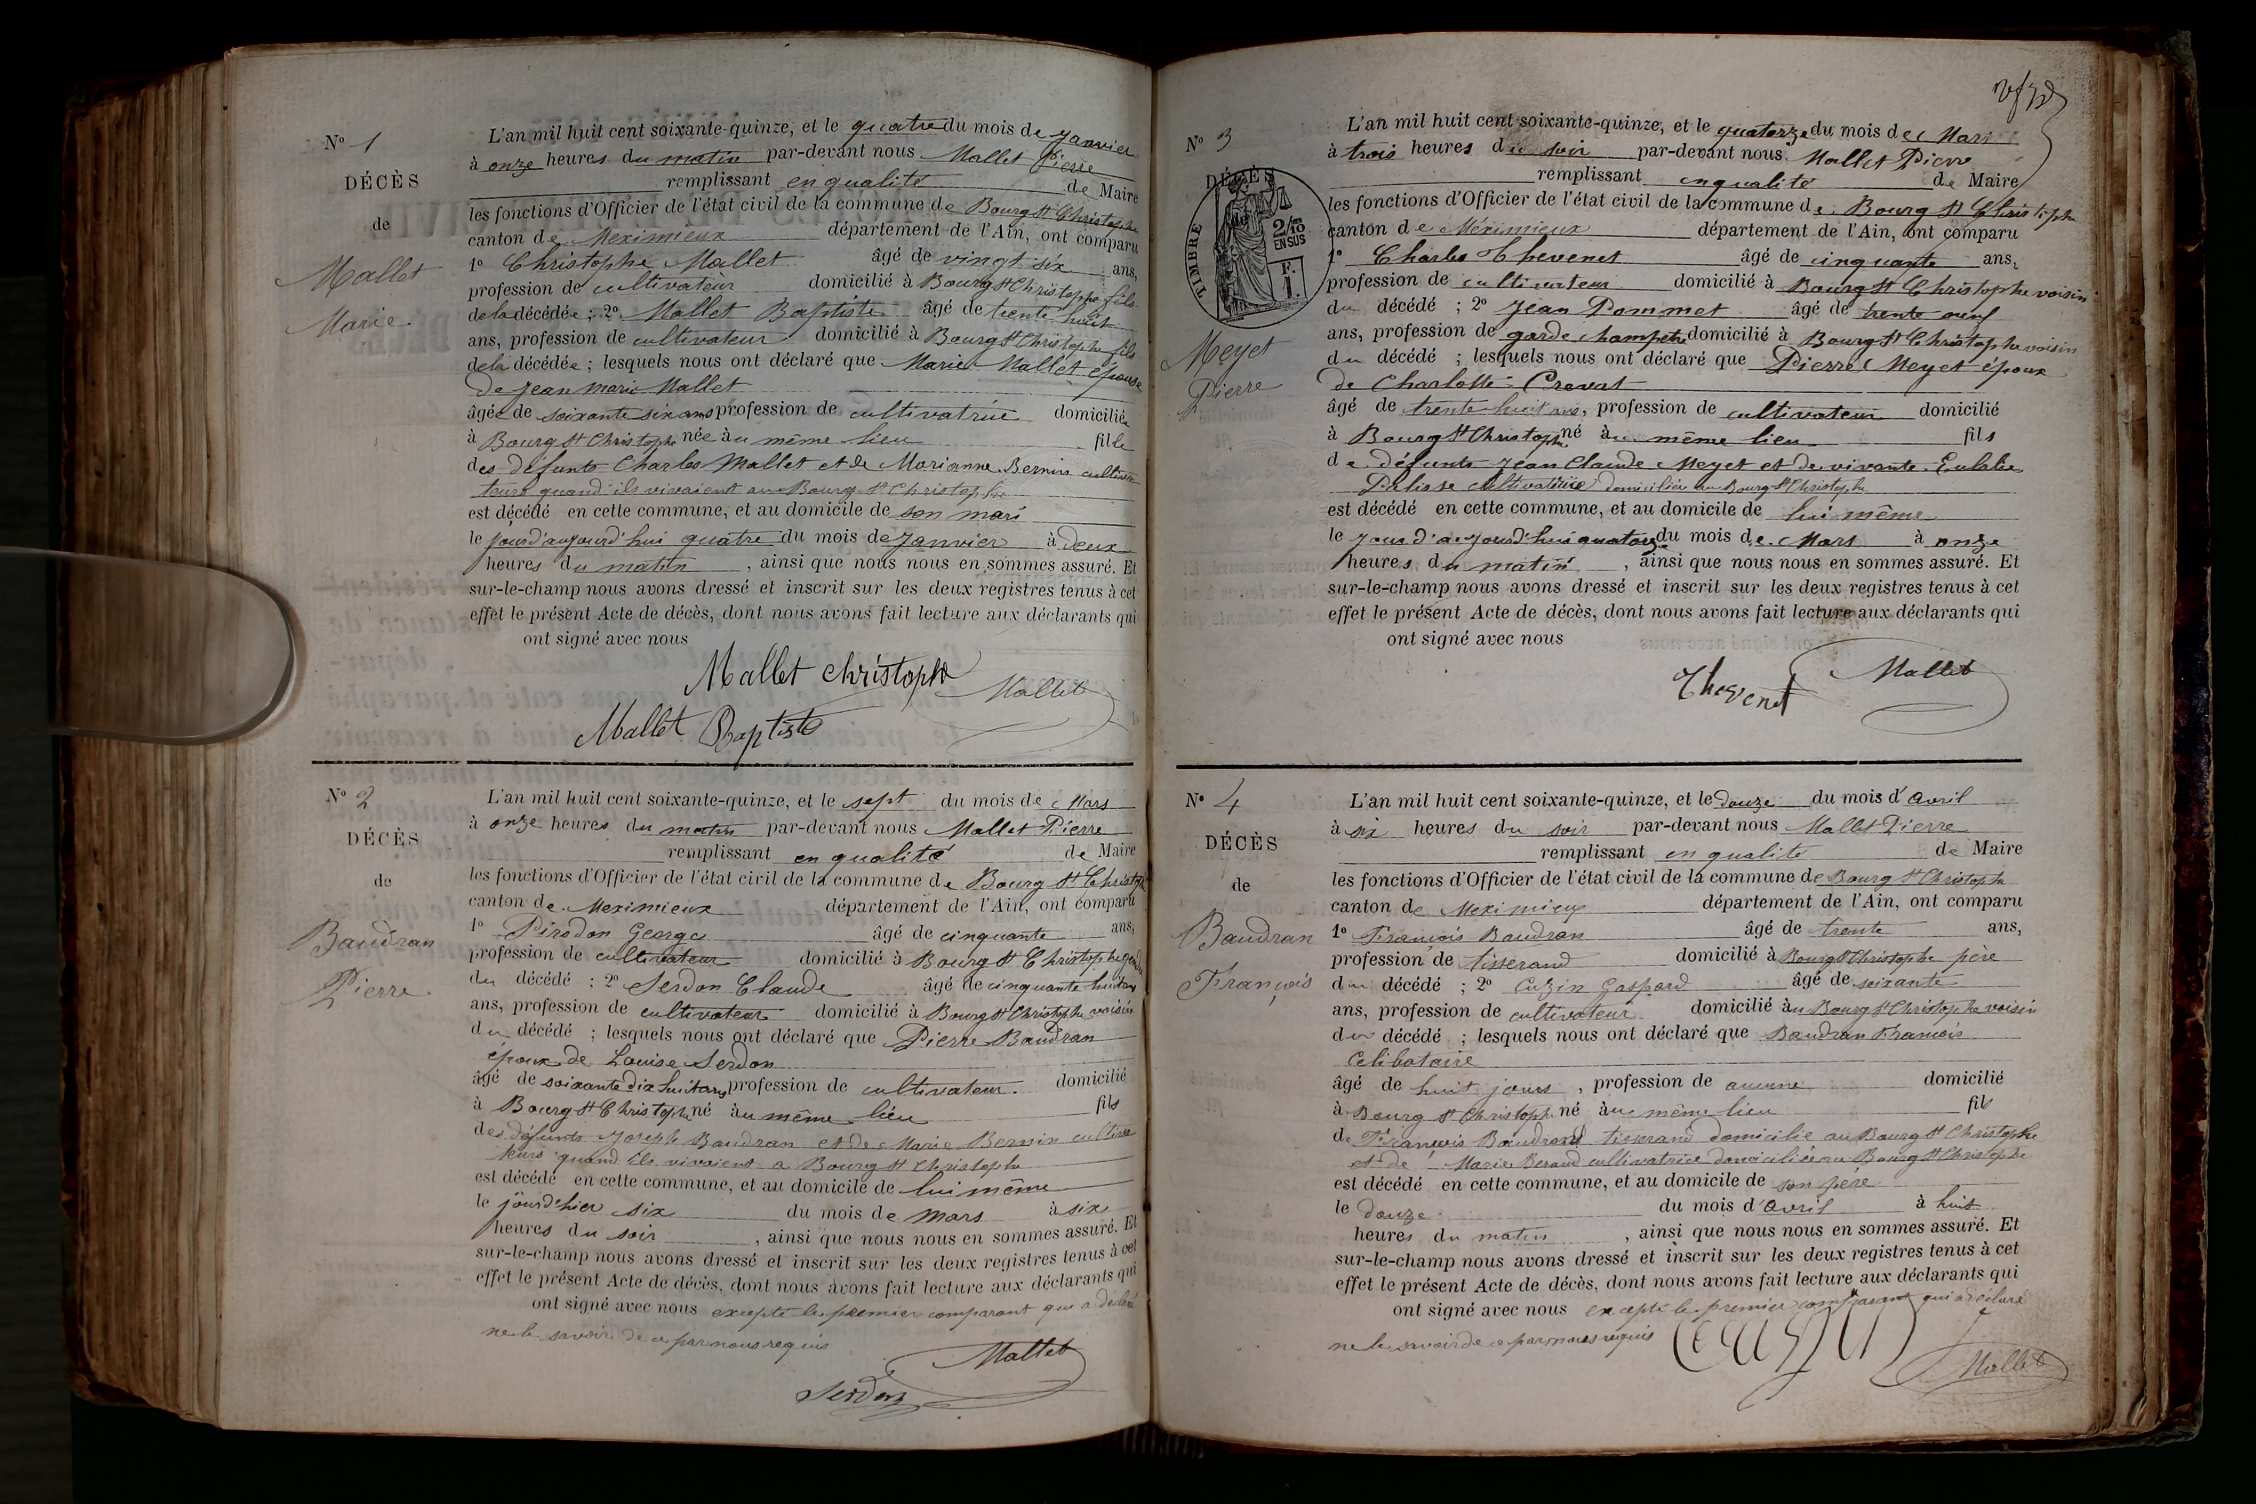 N° 1
DÉCÈS
de
Mallet
Marie
L'an mil huit cent soixante-quinze, et le quatre du mois de Janvier
à onze heures du matin par-devant nous Mallet Pierre
remplissant en qualité de Maire
les fonctions d'Officier de l'état civil de la commune de Bourg St Christophe
canton de Meximieux département de l'Ain, ont comparu
1° Christophe Mallet âgé de vingt six ans,
profession de cultivateur domicilié à Bourg St Christophe fils
de la décédée ; 2° Mallet Baptiste âgé de trente huit
ans, profession de cultivateur domicilié à Bourg St Christophe fils
de la décédée ; lesquels nous ont déclaré que Marie Mallet épouse
de Jean Marie Mallet
âgée de soixante six ans profession de cultivatrice domiciliée
à Bourg St Christophe née au même lieu fille
des défunts Charles Mallet et de Marianne Bernin cultiva
teurs quand ils vivaient au Bourg St Christophe
est décédé en cette commune, et au domicile de son mari
le jour d'aujourd'hui quatre du mois de Janvier à deux
heures du matin, ainsi que nous nous en sommes assuré. Et
sur-le-champ nous avons dressé et inscrit sur les deux registres tenus à cet
effet le présent Acte de décès, dont nous avons fait lecture aux déclarants qui
ont signé avec nous
Mallet christophe
Mallet
Mallet Baptiste
N° 2
DÉCÈS
de
Baudran
Pierre
L'an mil huit cent soixante-quinze, et le sept du mois de Mars
à onze heures du matin par-devant nous Mallet Pierre
remplissant en qualité de Maire
les fonctions d'Officier de l'état civil de la commune de Bourg St Christophe
canton de Meximieux département de l'Ain, ont comparu
1° Pirodon George âgé de cinquante ans,
profession de cultivateur domicilié à Bourg St Christophe gendre
du décédé ; 2° Serdon Claude âgé de cinquante huit ans
ans, profession de cultivateur domicilié à Bourg St Christophe voisin
du décédé ; lesquels nous ont déclaré que Pierre Baudran
époux de Louise Serdon
âgé de soixante dix huit ans profession de cultivateur domicilié
à Bourg St Christophe né au même lieu fils
des défunts Joseph Baudran et de Marie Bernin cultiva
teurs quand ils vivaient a Bourg St Christophe
est décédé en cette commune, et au domicile de lui même
le jour d'hier six du mois de Mars à six
heures du soir, ainsi que nous nous en sommes assuré. Et
sur-le-champ nous avons dressé et inscrit sur les deux registres tenus à cet
effet le présent Acte de décès, dont nous avons fait lecture aux déclarants qui
ont signé avec nous excepté le premier comparant qui a déclaré
ne le savoir de ce par nous requis
Mallet
Serdon
N° 3
DÉCÈS
TIMBRE
2/10
EN SUS
F.
1.
Meyet
Pierre
L'an mil huit cent soixante-quinze, et le quatorze du mois de Mars
à trois heures du soir par-devant nous Mallet Pierre
remplissant en qualité de Maire
les fonctions d'Officier de l'état civil de la commune de Bourg St Christophe
canton de Méximieux département de l'Ain, ont comparu
1° Charles Thevenet âgé de cinquante ans,
profession de cultivateur domicilié à Bourg St Christophe voisin
du décédé ; 2° Jean Pommet âgé de trente neuf
ans, profession de garde champêtre domicilié à Bourg St Christophe voisin
du décédé ; lesquels nous ont déclaré que Pierre Meyet époux
de Charlotte Crevat
âgé de trente huit ans, profession de cultivateur domicilié
à Bourg St Christophe né au même lieu fils
de défunts Jean Claude Meyet et de vivante Eulalie
Palisse cultivatrice domiciliée au Bourg St Christophe
est décédé en cette commune, et au domicile de lui même
le jour d'aujourd'hui quatorze du mois de Mars à onze
heures du matin, ainsi que nous nous en sommes assuré. Et
sur-le-champ nous avons dressé et inscrit sur les deux registres tenus à cet
effet le présent Acte de décès, dont nous avons fait lecture aux déclarants qui
ont signé avec nous
Mallet
Thevenet
N° 4
DÉCÈS
de
Baudran
François
L'an mil huit cent soixante-quinze, et le douze du mois d'Avril
à six heures du soir par-devant nous Mallet Pierre
remplissant en qualité de Maire
les fonctions d'Officier de l'état civil de la commune de Bourg St Christophe
canton de Meximieux département de l'Ain, ont comparu
1° François Baudran âgé de trente ans,
profession de tisserand domicilié à Bourg St Christophe père
du décédé ; 2° Cuzin Gaspard âgé de soixante
ans, profession de cultivateur domicilié au Bourg St Christophe voisin
du décédé ; lesquels nous ont déclaré que Baudran François
Celibataire
âgé de huit jours, profession de aucune domicilié
à Bourg St Christophe né au même lieu fils
de François Baudrand tisserand domicilié au Bourg St Christophe
et de Marie Beraud cultivatrice domiciliée au Bourg St Christophe
est décédé en cette commune, et au domicile de son père
le douze du mois d'Avril à huit
heures du matin, ainsi que nous nous en sommes assuré. Et
sur-le-champ nous avons dressé et inscrit sur les deux registres tenus à cet
effet le présent Acte de décès, dont nous avons fait lecture aux déclarants qui
ont signé avec nous excepté le premier comparant qui a déclaré
ne le savoir de ce par nous requis
Cuzin
Mallet